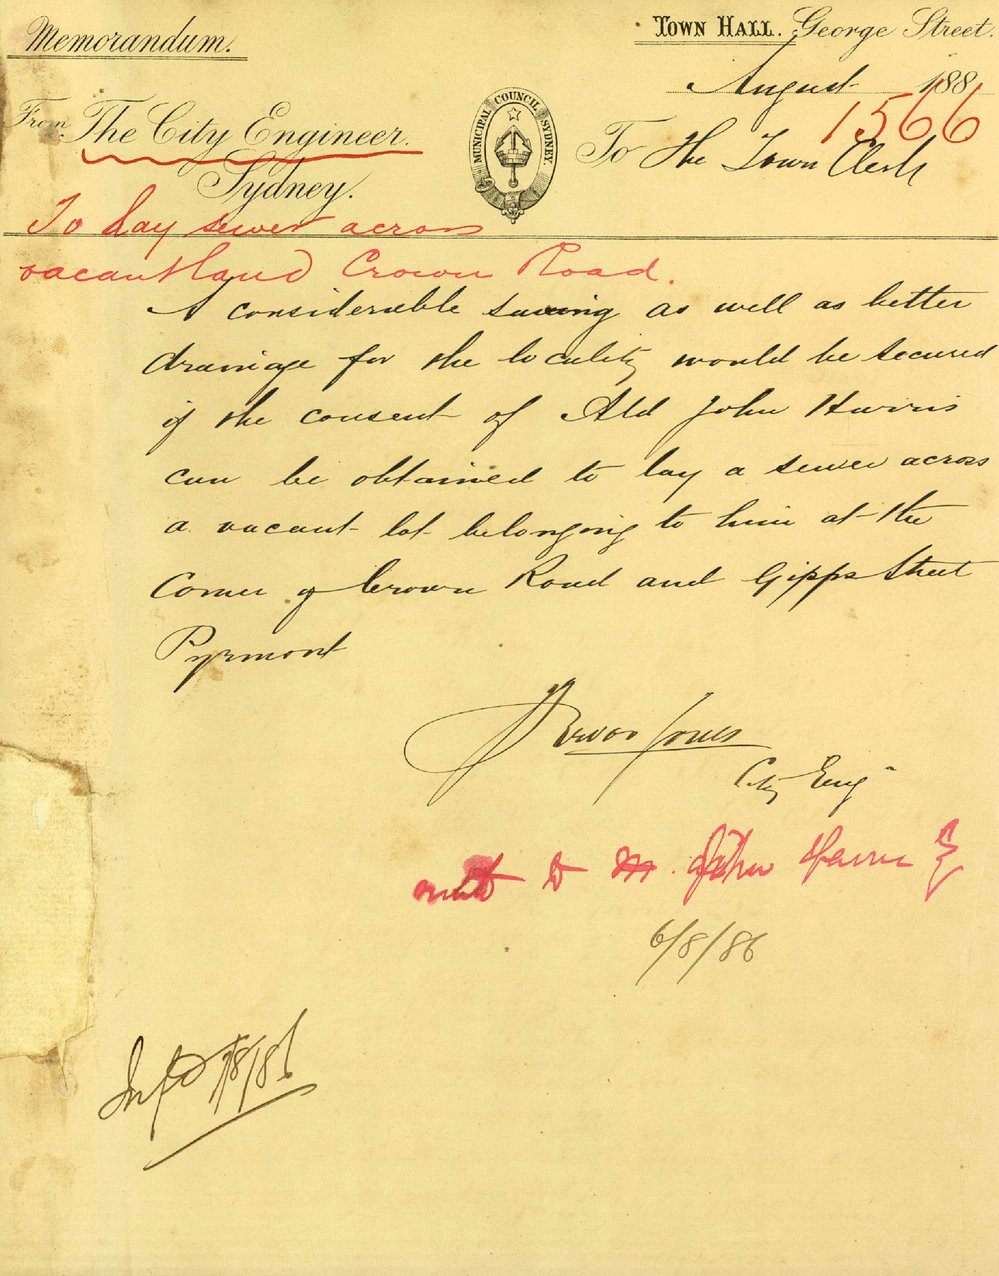 Memorandum.
TOWN HALL. George Street.
August 188
1566
From The City Engineer.
Sydney.
MUNICIPAL COUNCIL SYDNEY.
To The Town Clerk
To lay sewer across
vacant land Crown Road.
A considerable saving as well as better
drainage for the locality would be secured
if the consent of Ald John Harris
can be obtained to lay a sewer across
a vacant lot belonging to him at the
Corner of Crown Road and Gipps Street
Pyrmont
Trevor Jones
City Engr
to Mr. John Harris
6/8/86
Infd 7/8/86